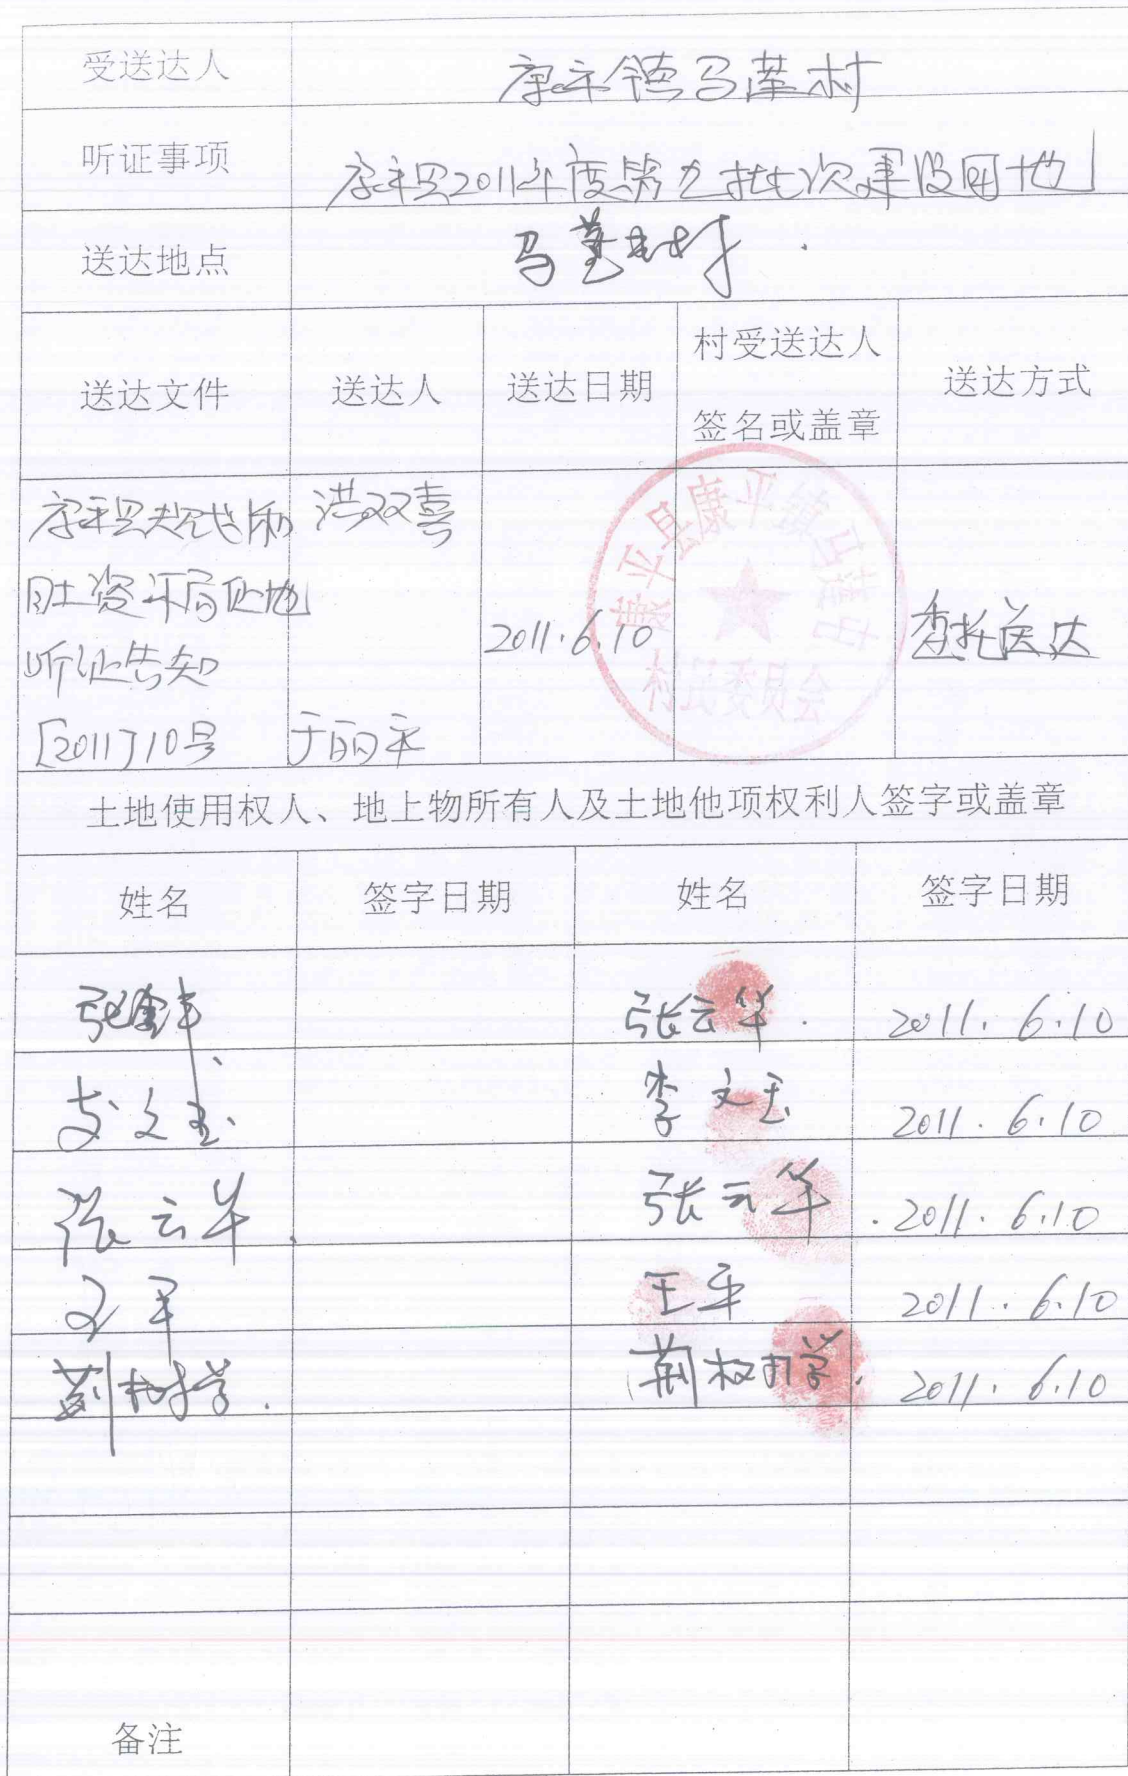 受送达人 康平镇马莲村
听证事项 康平县2011年度第九批次建设用地
送达地点 马莲村
送达文件 送达人 送达日期 村受送达人签名或盖章 送达方式
康平县规划和 洪双喜
国土资源局征地
听证告知 2011.6.10 委托送达
[2011]10号 于丽平
康平县康平镇马莲屯
村民委员会
土地使用权人、地上物所有人及土地他项权利人签字或盖章
姓名 签字日期 姓名 签字日期
张云华 2011.6.10
李文玉 2011.6.10
张云华 张云华 2011.6.10
王平 2011.6.10
荆树学 荆树学 2011.6.10
备注